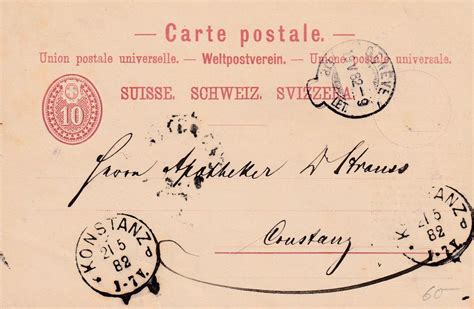 — Carte postale. —
Union postale universelle. – Weltpostverein. – Unione postale universale.
SUISSE. SCHWEIZ. SVIZZERA.
10
GENÈVE
V 82 – 9
LET.
Herrn Apotheker Dr Strauss
Constanz
KONSTANZ
21 5
82
1-7V.
KONSTANZ
21 5
82
1-7V.
60-